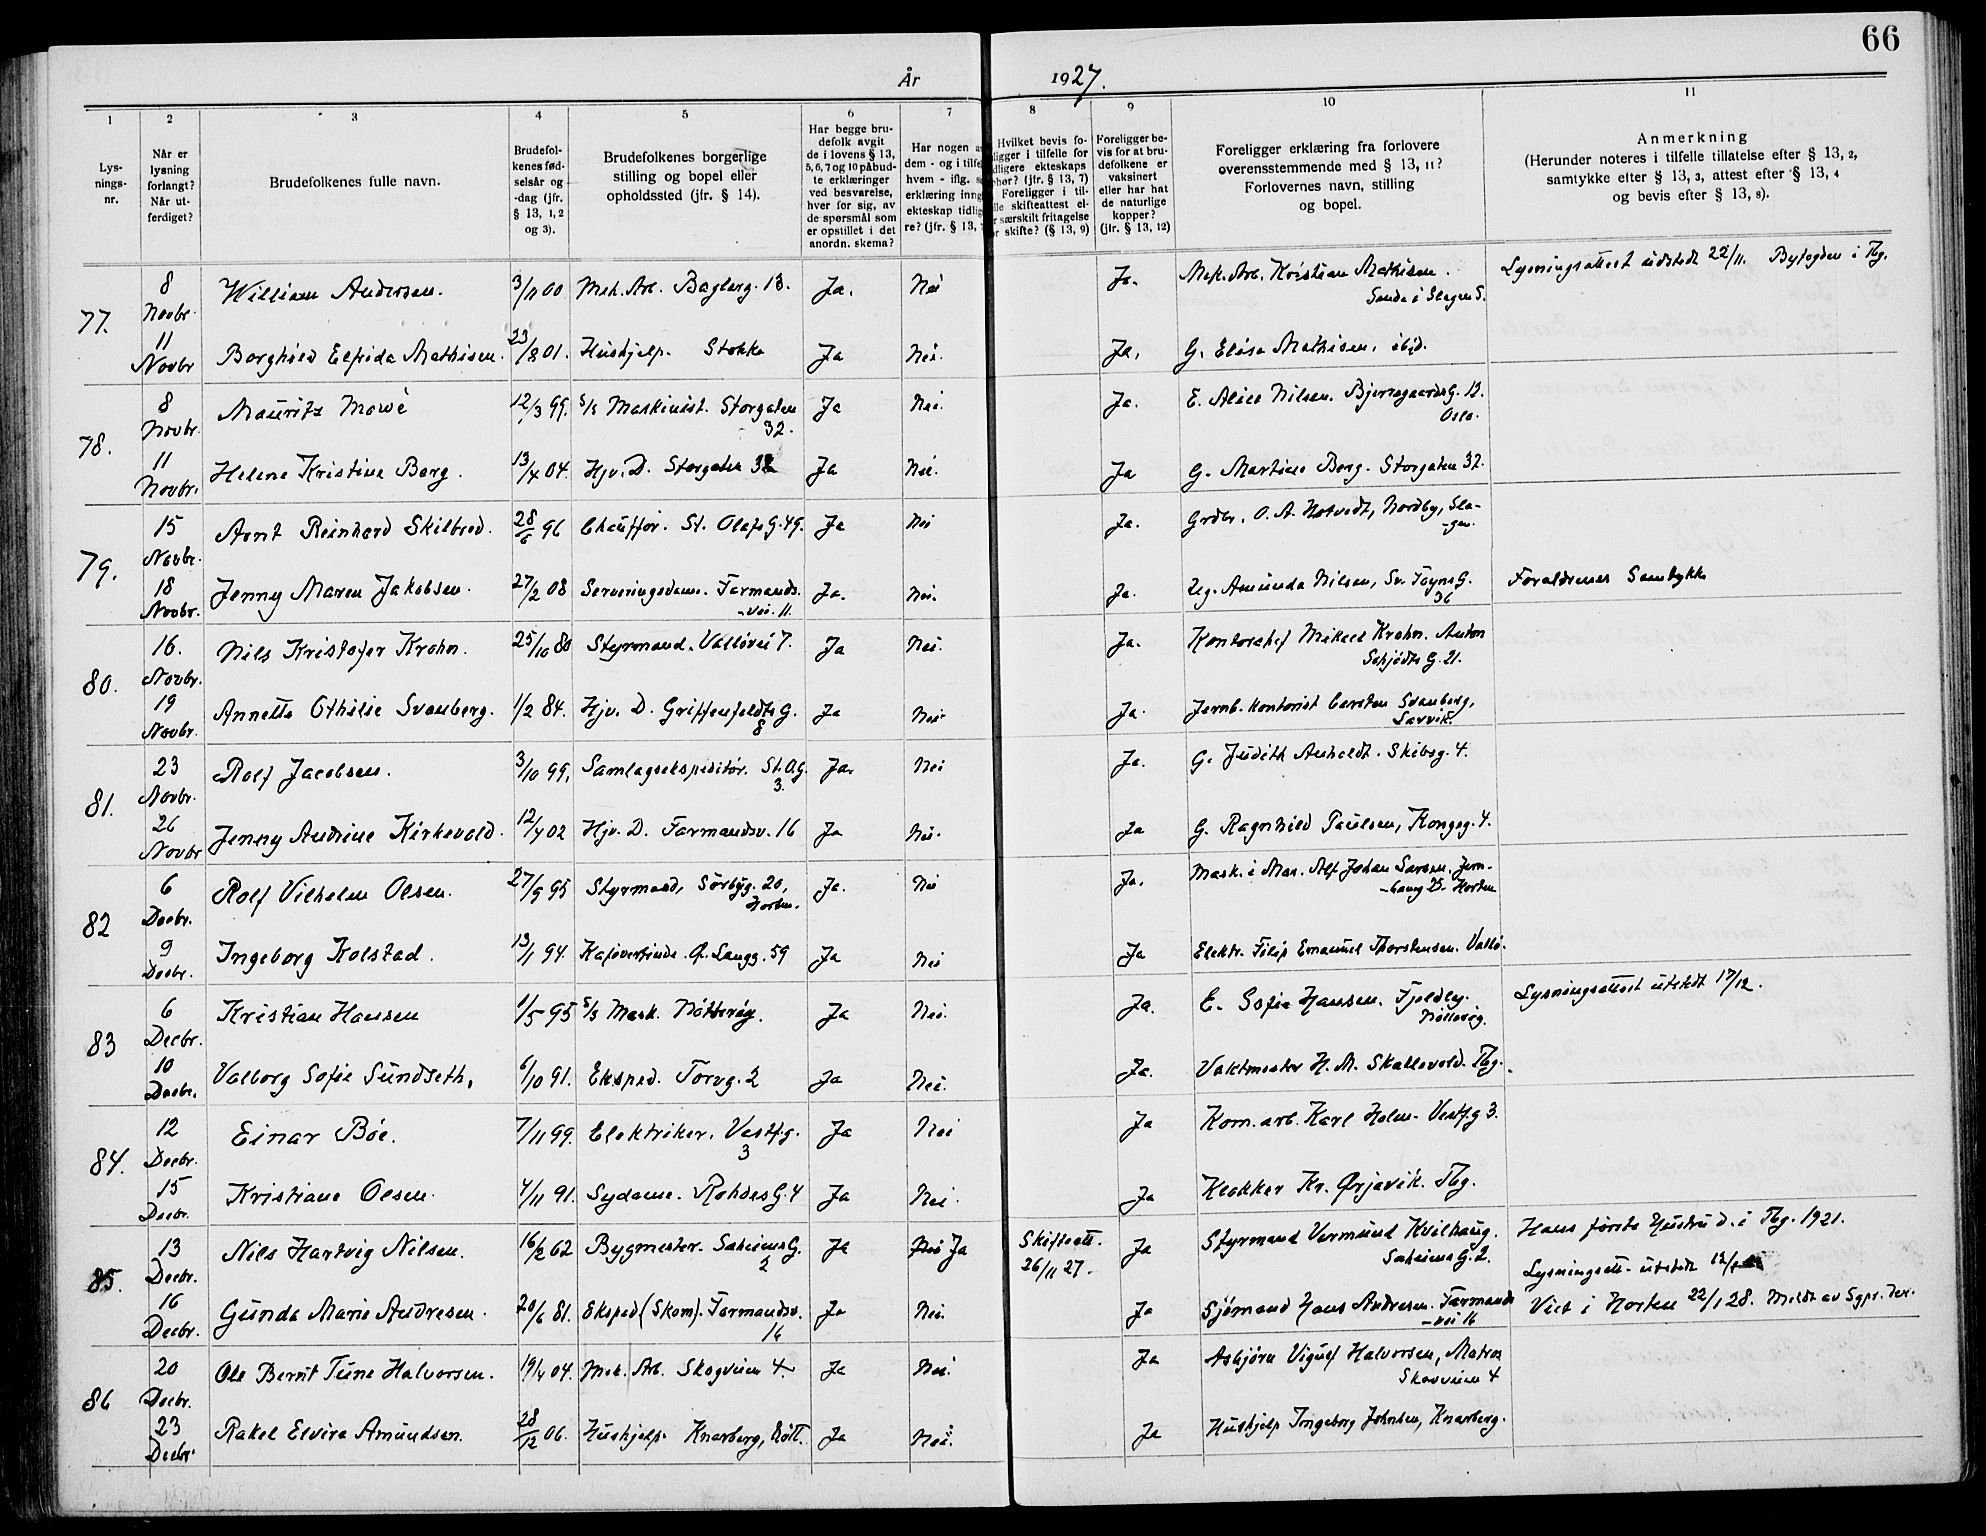 66
År 1927.
1 2 3 4 5 6 7 8 9 10 11
Lys-
nings-
nr.
Når er
lysning
forlangt?
Når ut-
ferdiget?
Brudefolkenes fulle navn.
Brudefol-
kenes fød-
selsår og
-dag (jfr.
§ 13, 1, 2
og 3).
Brudefolkenes borgerlige
stilling og bopel eller
opholdssted (jfr. § 14).
Har begge bru-
defolk avgit
de i lovens § 13,
5, 6, 7 og 10 påbud-
te erklæringer
ved besvarelse,
hver for sig, av
de spørsmål som
er opstillet i det
anordn. skema?
Har nogen a
dem - og i tilfe
hvem - iflg.
erklæring inng
ekteskap tidlig
re? (jfr. § 13,
Hvilket bevis fo-
ligger i tilfelle for
dligere ekteskaps
phør? (jfr. § 13, 7)
Foreligger i til-
lle skifteattest el-
r særskilt fritagelse
r skifte? (§ 13, 9)
Foreligger be-
vis for at bru-
defolkene er
vaksinert
eller har hat
de naturlige
kopper?
(jfr. § 13, 12)
Foreligger erklæring fra forlovere
overensstemmende med § 13, 11?
Forlovernes navn, stilling
og bopel.
Anmerkning
(Herunder noteres i tilfelle tillatelse efter § 13, 2,
samtykke efter § 13, 3, attest efter § 13, 4
og bevis efter § 13, 8).
77.
8 Novbr. William Andersen. 3/11 00 Mek. Arb. Bagleng. 13. Ja. Nei Ja. Mek. Arb. Kristian Mathisen. Lysningsattest utstedt 22/11. Byfogden i Tbg.
Sande i Slagen S.
11 Novbr Borghild Elfrida Mathisen. 23/8 01. Hushjelp. Stokke Ja Nei. Ja. G. Elise Mathisen. ibid.
78.
8 Novbr. Mauritz Mowé 12/3 99. S/S Maskinist. Storgaten Ja Nei. Ja. E. Alice Nilsen. Bjerregaards G. 12.
32. Oslo.
11 Novbr. Helene Kristine Berg. 13/4 04. Hjv. D. Storgaten 32 Ja Nei. Ja G. Martine Berg. Storgaten 32.
79.
15 Novbr. Arnt Reinhard Skilbred. 28/6 96 Chauffør. St. Olafs G. 49. Ja Nei Ja. Grdbr. O. A. Hotvedt, Nordby, Sla-
-gen.
18 Novbr. Jenny Maren Jakobsen. 27/2 08 Serveringsdame. Farmands. Ja. Nei. Ja. Ug. Amunda Nilsen, Sv. Foyns G. Foraldrenes Samtykke
-vei. 11. 36
80.
16. Novbr. Nils Kristofer Krohn. 25/10 80 Styrmand. Valløvei 7. Ja Nei. Ja. Kontorchef Mikael Krohn. Anton
Schjødts G. 21.
19 Novbr. Annette Othilie Svanberg. 1/2 84. Hjv. D. Griffenfeldts G. Ja Nei. Ja. Jernb. kontorist Carsten Svanberg,
8 Larvik.
81.
23 Novbr. Rolf Jacobsen. 3/10 99. Samlagsekspeditør. St. O. G. Ja. Nei Ja. G. Judith Anholdt. Skibsg. 4.
3.
26 Novbr Jenny Andrine Kirkevold. 12/4 02 Hjv. D. Farmandsv. 16 Ja Nei. Ja G. Ragnhild Paulsen, Kongsg. 4.
82
6 Decbr. Rolf Vilhelm Olsen. 27/9 95 Styrmand, Sörbyg. 20, Ja. Nei Ja. Mask. i Mar. Alf Johan Larsen. Jern-
Horten. -baneg 25. Horten
9 Decbr. Ingeborg Kolstad. 13/1 94. Kafévertinde. Ø. Langg. 59 Ja Nei Ja Elektr. Filip Emanuel Thorstensen. Vallö.
83
6 Decbr. Kristian Hansen 1/5 95 S/S Mask. Nötteröy. Ja Nei. Ja. E. Sofie Hansen. Fjeldly. Lysningsattest utstedt 17/12.
Nötteröy.
10 Decbr. Valborg Sofie Sundseth. 6/10 91. Eksped. Torvg. 2 Ja Nei. Ja. Vaktmester H. M. Skallevold. Tbg.
84.
12 Decbr. Einar Böe. 7/11 99. Elektriker. Vestfg. Ja Nei Ja Kom. arb. Karl Holm. Vestfg 3.
3
15 Decbr. Kristiane Olsen. 4/11 91. Sydame. Rohdes G. 4 Ja Nei. Ja Klokker Kr. Ørjavik. Tbg.
85.
13 Decbr. Nils Hartvig Nilsen. 16/2 62 Bygmester. Saheims G. Ja Nei Ja Skifteatt. Ja Styrmand Vermund Kvilhaug. Hans første Hustru d. i Tbg. 1921.
2 26/11 27. Saheims G. 2. Lysningsatt. utstedt
16 Decbr. Gunda Marie Andresen. 20/6 81. Eksped (Skom). Farmandsv. Ja Nei. Ja Sjömand Hans Andresen. Farmands Viet i Horten 22/1 28. Meldt av Sgpr. der.
16 -vei 16
86
20 Decbr. Ole Bernt Tune Halvorsen. 19/4 04. Mek. Arb. Skogveien 4 Ja Nei. Ja Asbjörn Vigulf Halvorsen, Matros
Skogveien 4
23 Decbr. Rakel Elvira Amundsen. 28/12 06. Hushjelp. Knarberg, Nött. Ja Nei. Ja Hushjelp Ingeborg Johnsen, Knarberg.